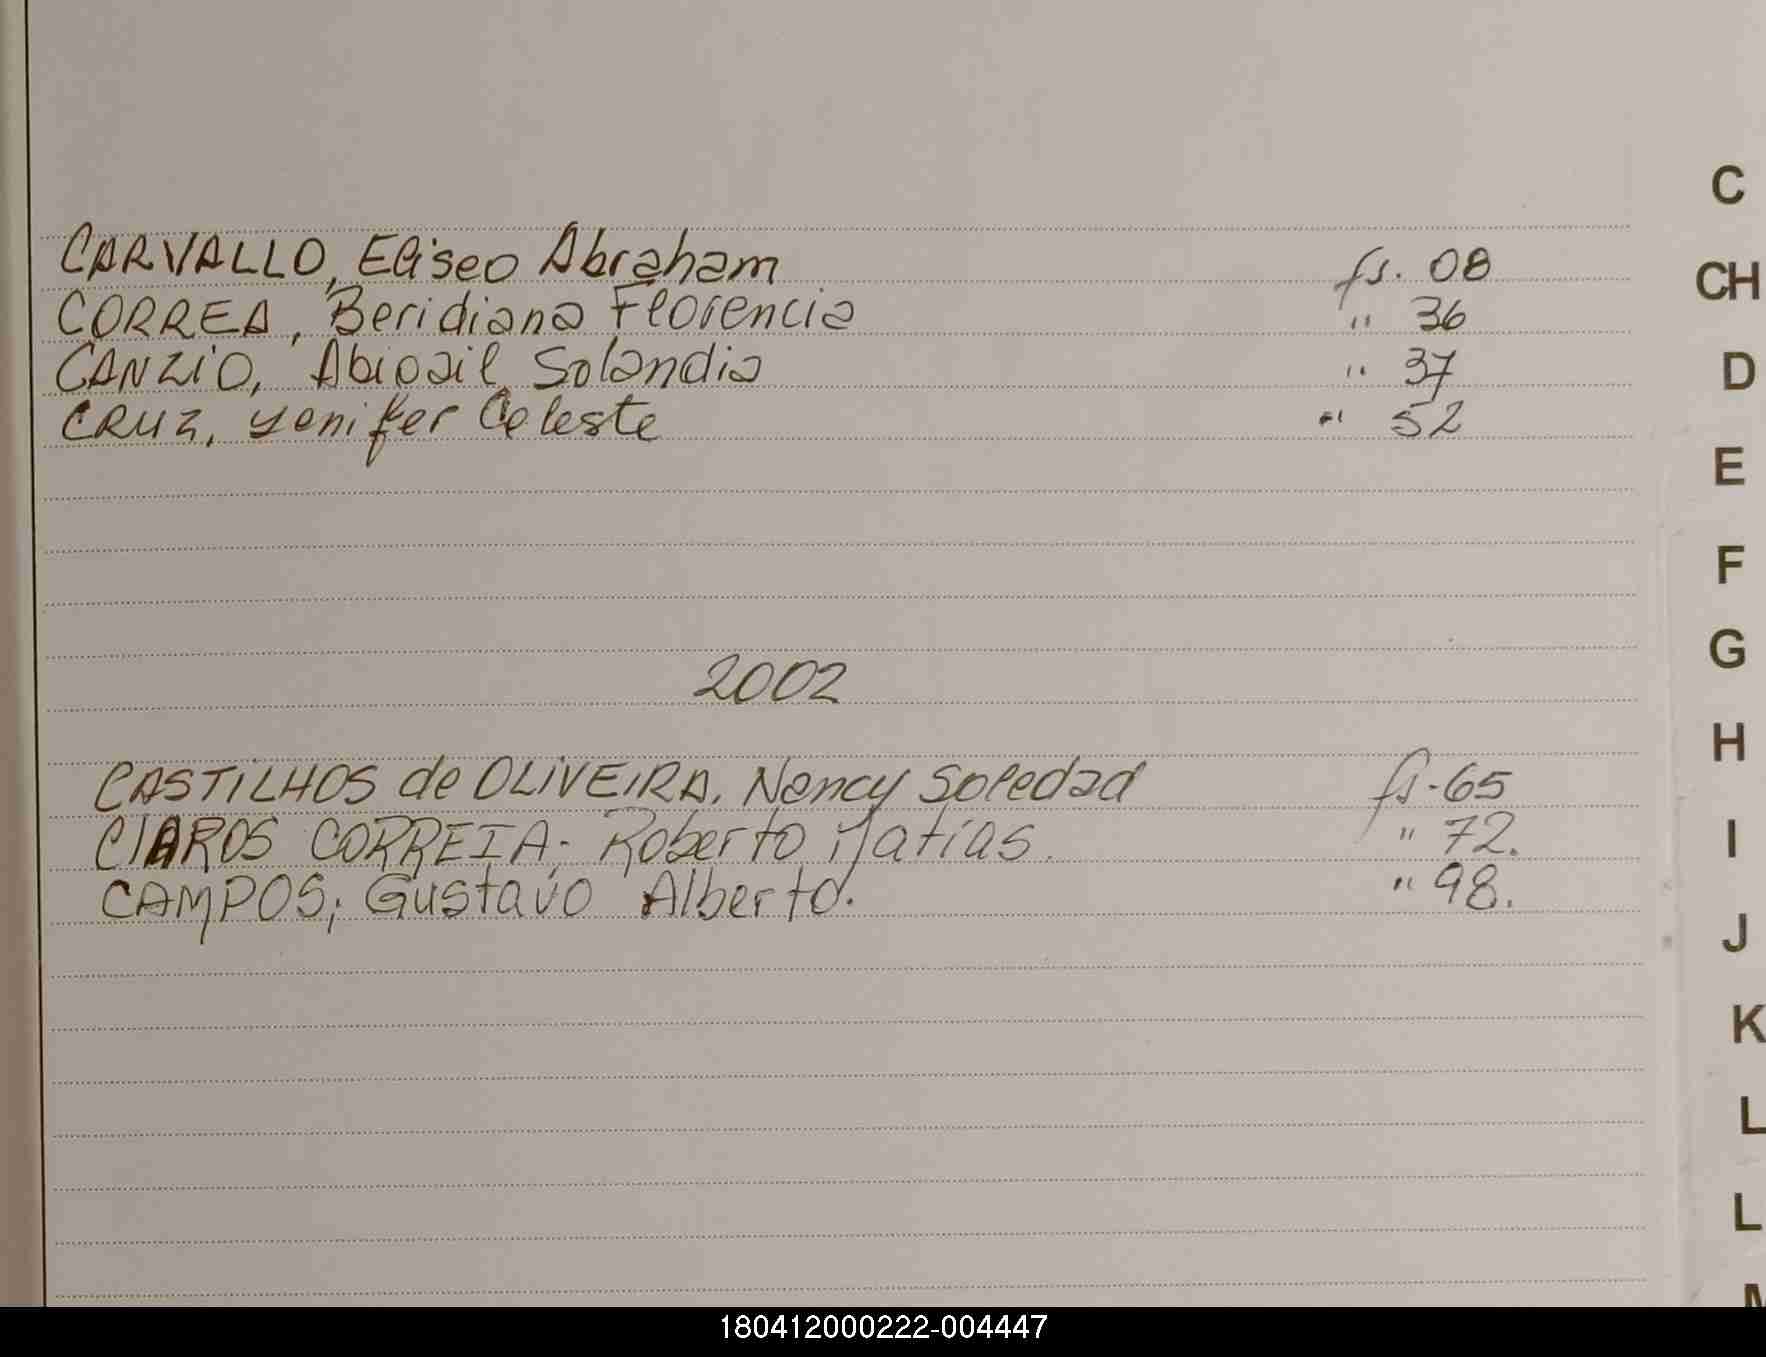 CARVALLO, Eliseo Abraham fs. 08
CORREA, Beridiana Florencia " 36
CANZIO, Abigail Solandia " 37
CRUZ, Yenifer Celeste " 52
2002
CASTILHOS de OLIVEIRA, Nancy Soledad fs. 65
CLAROS CORREIA; Roberto Matías. " 72.
CAMPOS; Gustavo Alberto. " 98.
C
CH
D
E
F
G
H
I
J
K
L
L
M
180412000222-004447